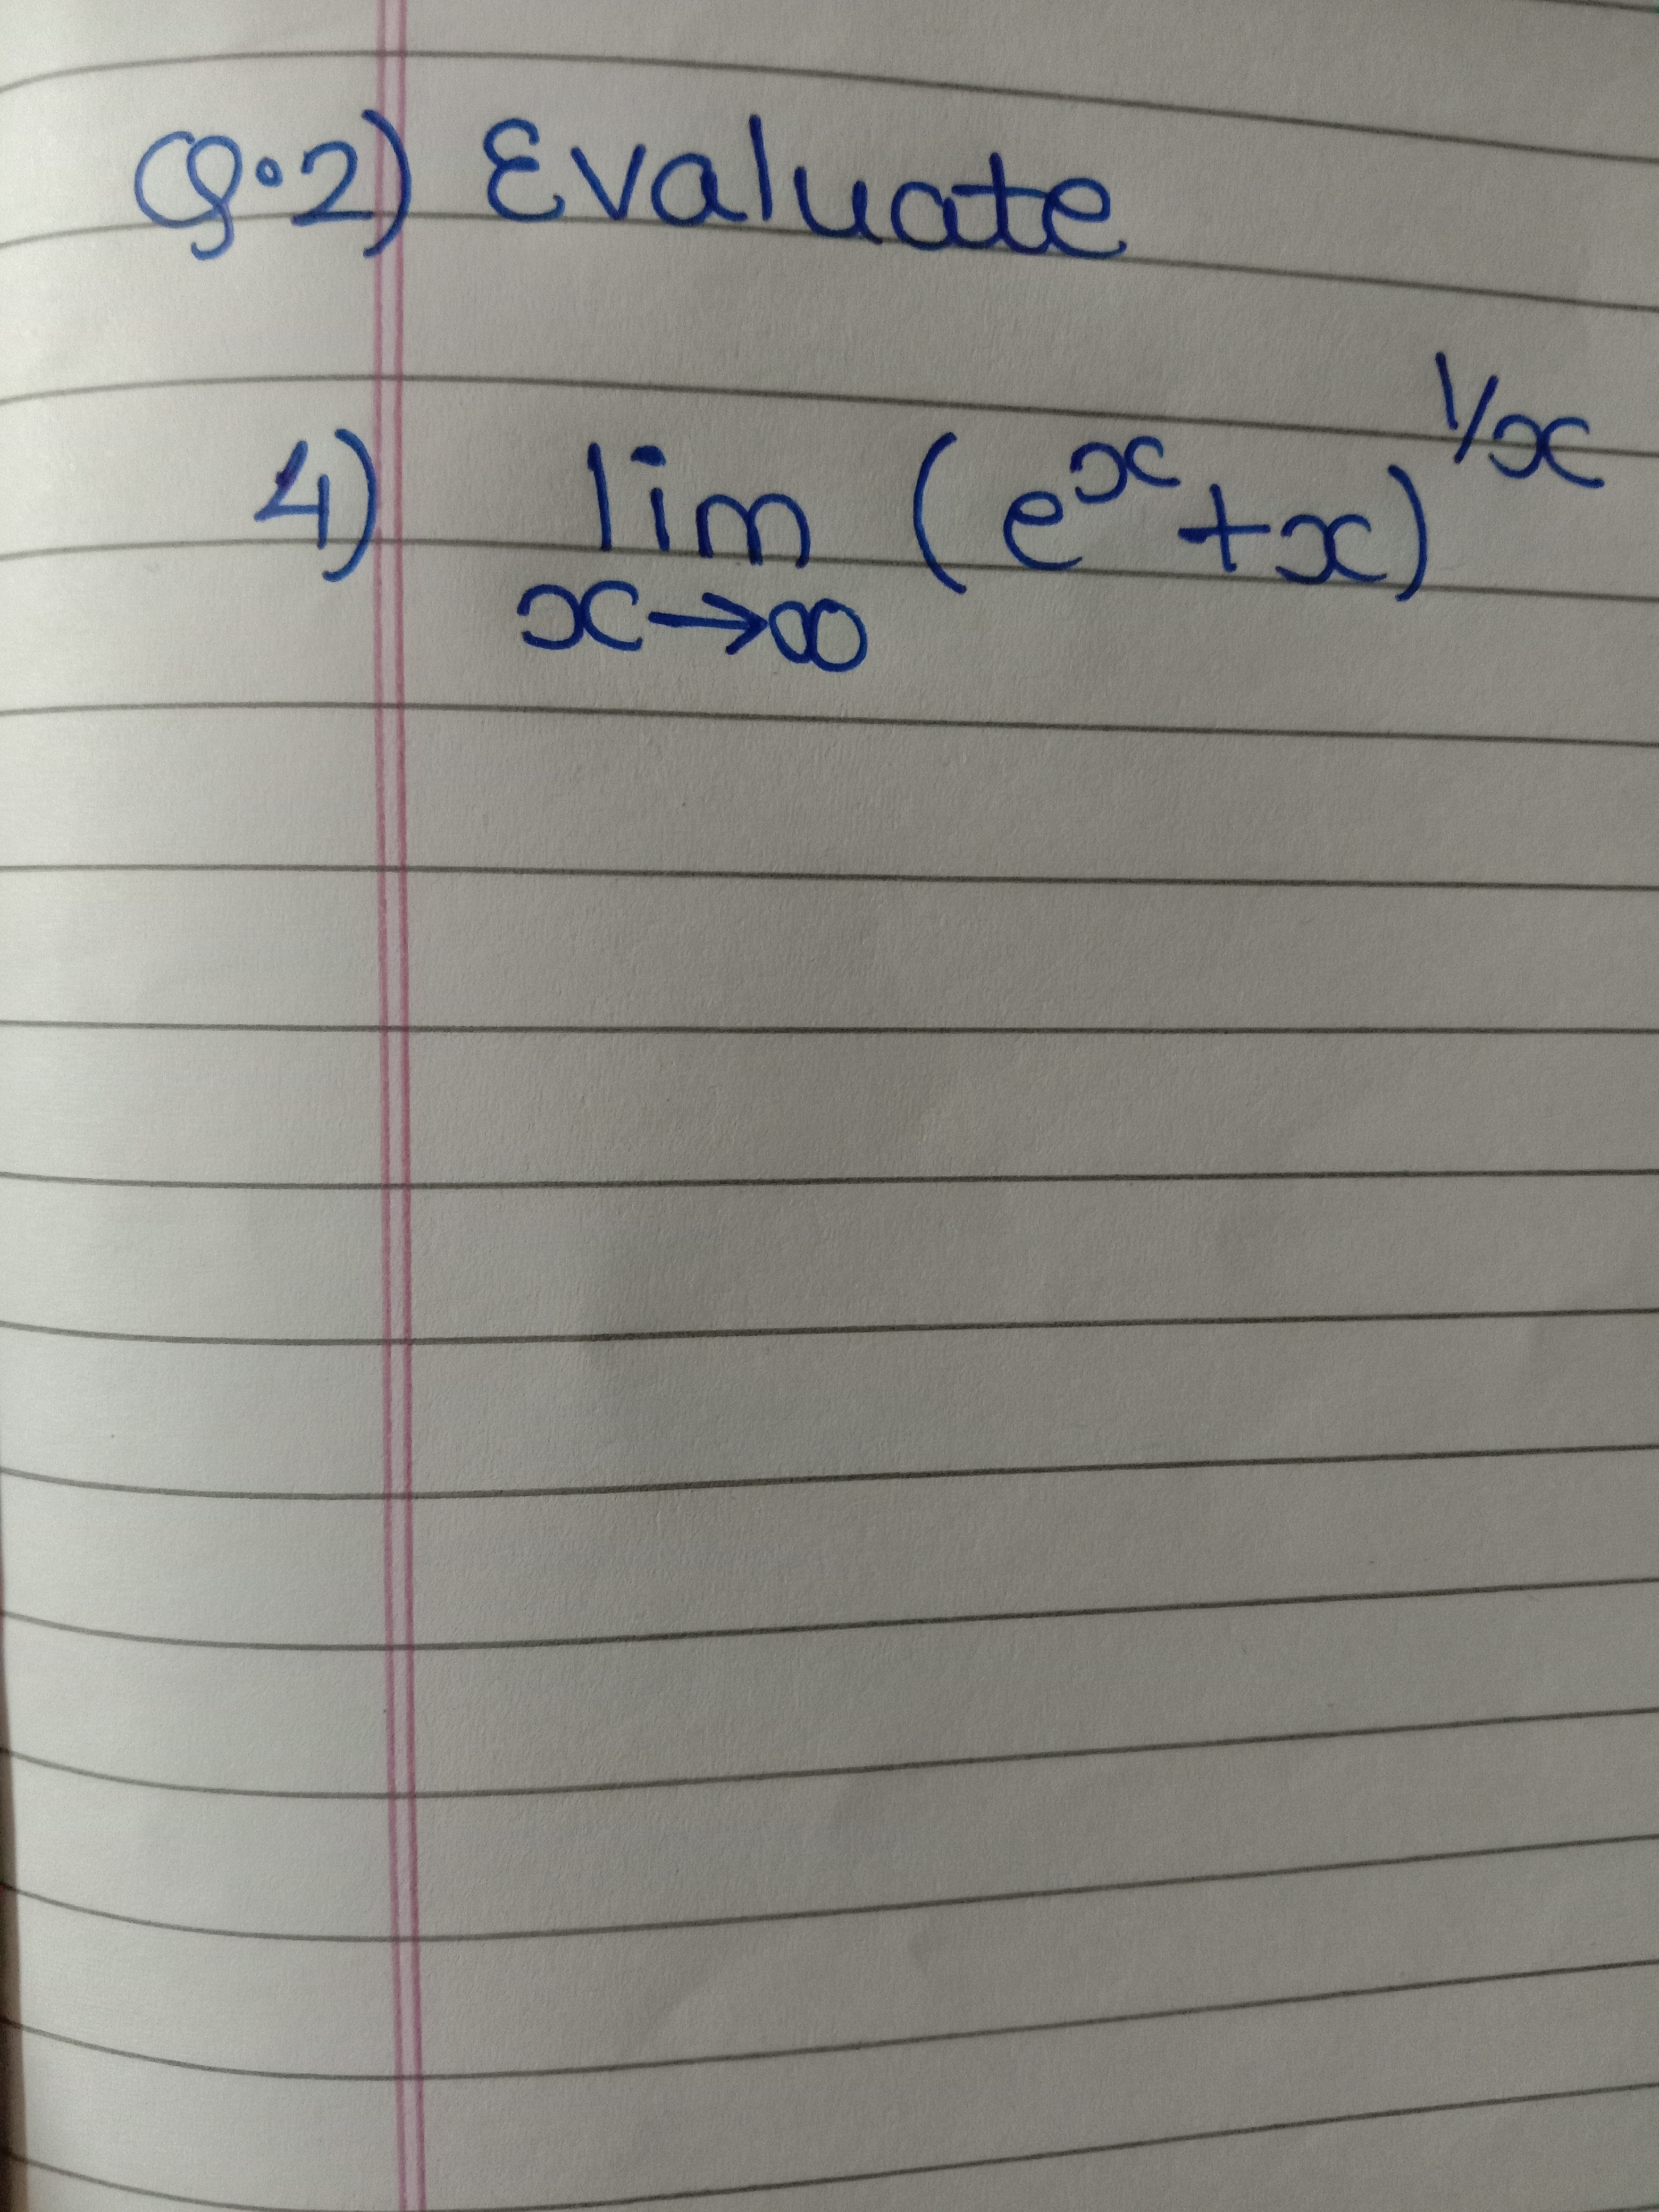 Q.2) Evaluate
4) lim (e^x + x)^1/x
x→∞